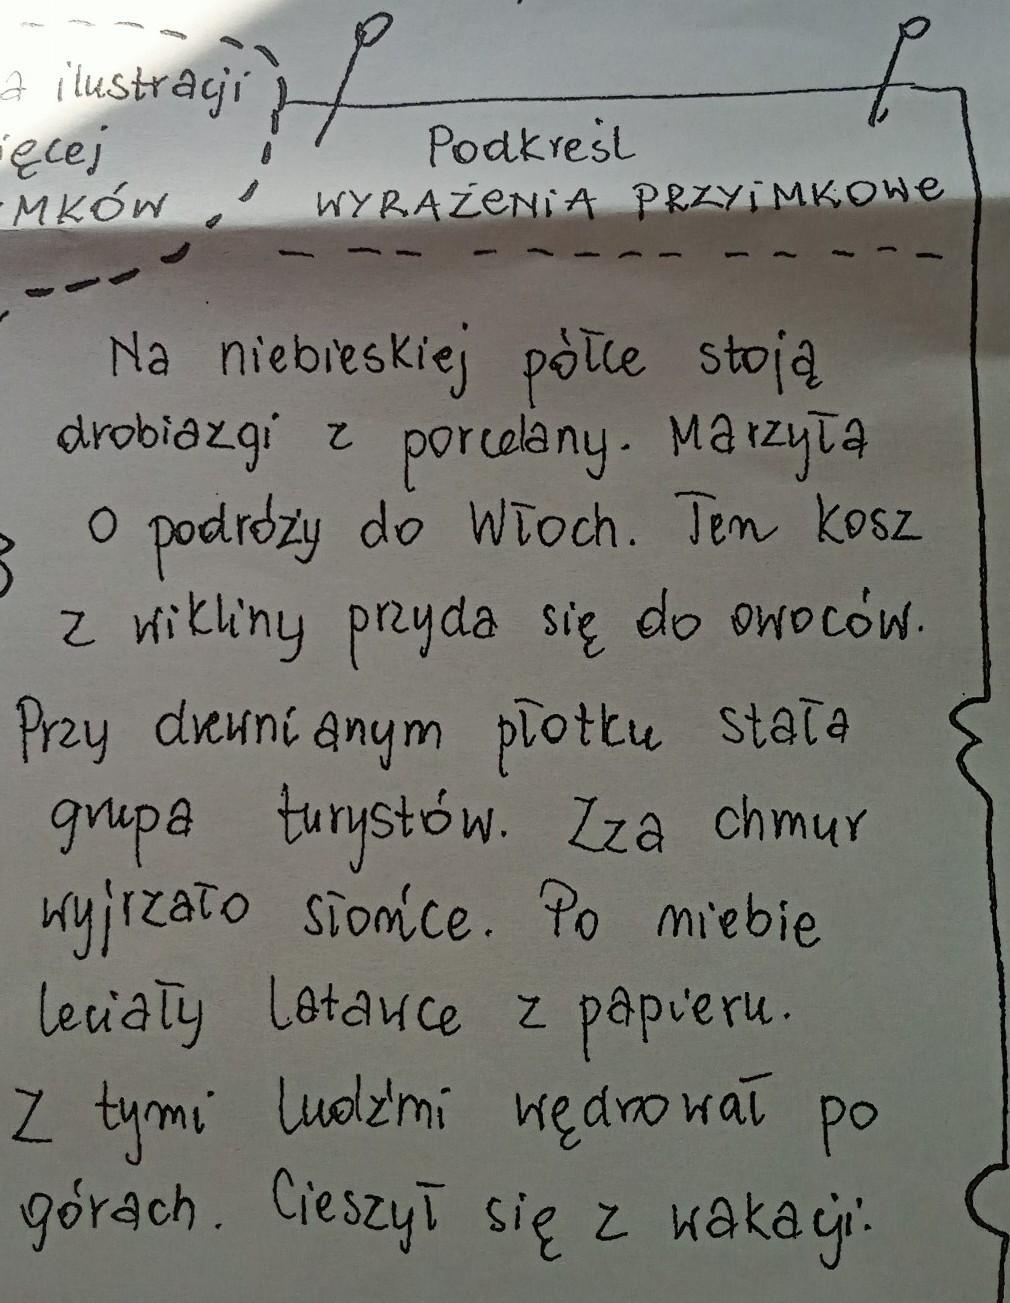 a ilustracji
ięcej
MKÓW
Podkreśl
WYRAŻENIA PRZYIMKOWE
Na niebieskiej półce stoją
drobiazgi z porcelany. Marzyła
o podróży do Włoch. Ten kosz
z wikliny przyda się do owoców.
Przy drewnianym płotku stała
grupa turystów. Zza chmur
wyjrzało słońce. Po niebie
leciały latawce z papieru.
Z tymi ludźmi wędrował po
górach. Cieszył się z wakacji.